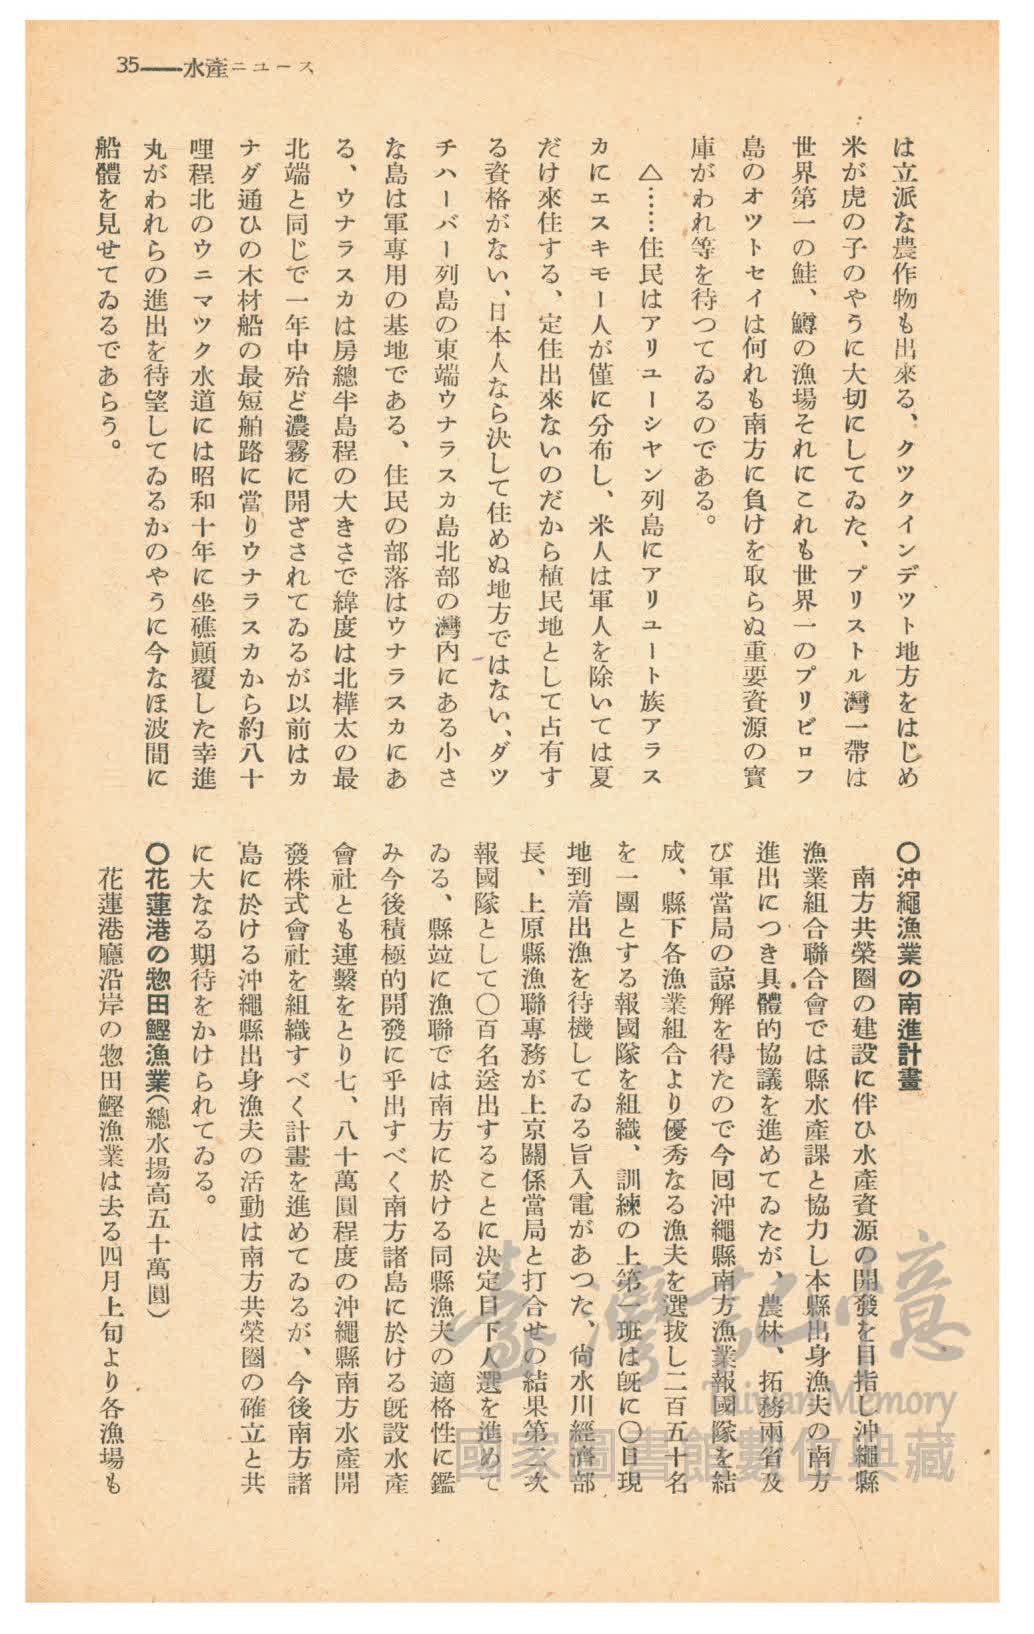 35――水產ニユース
は立派な農作物も出來る、クツクインデツト地方をはじめ
米が虎の子のやうに大切にしてゐた、プリストル灣一帶は
世界第一の鮭、鱒の漁場それにこれも世界一のプリビロフ
島のオツトセイは何れも南方に負けを取らぬ重要資源の寳
庫がわれ等を待つてゐるのである。
△……住民はアリユーシヤン列島にアリユート族アラス
カにエスキモー人が僅に分布し、米人は軍人を除いては夏
だけ來住する、定住出來ないのだから植民地として占有す
る資格がない、日本人なら決して住めぬ地方ではない、ダツ
チハーバー列島の東端ウナラスカ島北部の灣內にある小さ
な島は軍專用の基地である、住民の部落はウナラスカにあ
る、ウナラスカは房總半島程の大きさで緯度は北樺太の最
北端と同じで一年中殆ど濃霧に閉ざされてゐるが以前はカ
ナダ通ひの木材船の最短舶路に當りウナラスカから約八十
哩程北のウニマツク水道には昭和十年に坐礁顚覆した幸進
丸がわれらの進出を待望してゐるかのやうに今なほ波間に
船體を見せてゐるであらう。
〇沖繩漁業の南進計畫
南方共榮圈の建設に伴ひ水產資源の開發を目指し沖繩縣
漁業組合聯合會では縣水產課と協力し本縣出身漁夫の南方
進出につき具體的協議を進めてゐたが、農林、拓務兩省及
び軍當局の諒解を得たので今囘沖繩縣南方漁業報國隊を結
成、縣下各漁業組合より優秀なる漁夫を選拔し二百五十名
を一團とする報國隊を組織、訓練の上第一班は旣に〇日現
地到着出漁を待機してゐる旨入電があつた、尙水川經濟部
長、上原縣漁聯專務が上京關係當局と打合せの結果第二次
報國隊として〇百名送出することに決定目下人選を進めて
ゐる、縣竝に漁聯では南方に於ける同縣漁夫の適格性に鑑
み今後積極的開發に乎出すべく南方諸島に於ける旣設水產
會社とも連繫をとり七、八十萬圓程度の沖繩縣南方水產開
發株式會社を組織すべく計畫を進めてゐるが、今後南方諸
島に於ける沖繩縣出身漁夫の活動は南方共榮圈の確立と共
に大なる期待をかけられてゐる。
〇花蓮港の惣田鰹漁業（總水揚高五十萬圓）
花蓮港廳沿岸の惣田鰹漁業は去る四月上旬より各漁場も
臺灣記憶
Taiwan Memory
國家圖書館數位典藏